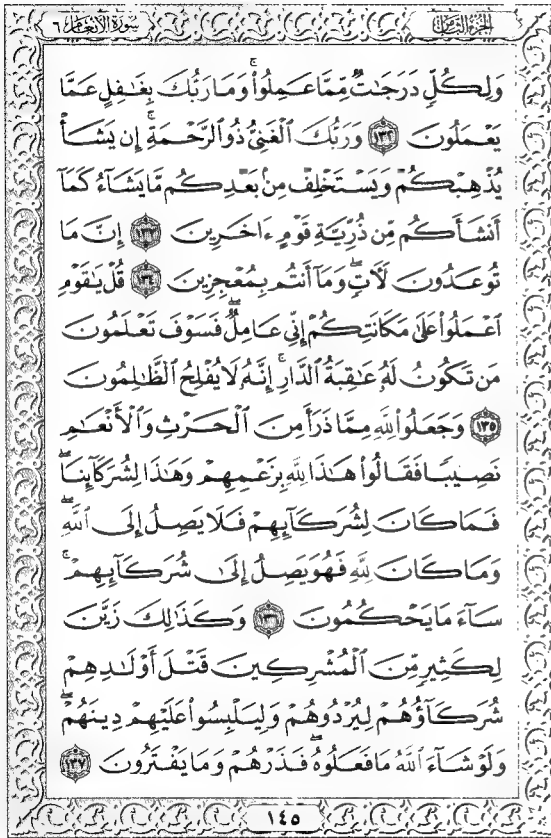 الجزء الثامن
سورة الأنعام ٦
وَلِكُلٍّ دَرَجَٰتٌ مِّمَّا عَمِلُوا۟ۚ وَمَا رَبُّكَ بِغَٰفِلٍ عَمَّا
يَعْمَلُونَ ١٣٢ وَرَبُّكَ ٱلْغَنِىُّ ذُو ٱلرَّحْمَةِۚ إِن يَشَأْ
يُذْهِبْكُمْ وَيَسْتَخْلِفْ مِنۢ بَعْدِكُم مَّا يَشَآءُ كَمَآ
أَنشَأَكُم مِّن ذُرِّيَّةِ قَوْمٍ ءَاخَرِينَ ١٣٣ إِنَّ مَا
تُوعَدُونَ لَءَاتٍۖ وَمَآ أَنتُم بِمُعْجِزِينَ ١٣٤ قُلْ يَٰقَوْمِ
ٱعْمَلُوا۟ عَلَىٰ مَكَانَتِكُمْ إِنِّى عَامِلٌۖ فَسَوْفَ تَعْلَمُونَ
مَن تَكُونُ لَهُۥ عَٰقِبَةُ ٱلدَّارِۚ إِنَّهُۥ لَا يُفْلِحُ ٱلظَّٰلِمُونَ
١٣٥ وَجَعَلُوا۟ لِلَّهِ مِمَّا ذَرَأَ مِنَ ٱلْحَرْثِ وَٱلْأَنْعَٰمِ
نَصِيبًا فَقَالُوا۟ هَٰذَا لِلَّهِ بِزَعْمِهِمْ وَهَٰذَا لِشُرَكَآئِنَاۖ
فَمَا كَانَ لِشُرَكَآئِهِمْ فَلَا يَصِلُ إِلَى ٱللَّهِۖ
وَمَا كَانَ لِلَّهِ فَهُوَ يَصِلُ إِلَىٰ شُرَكَآئِهِمْۗ
سَآءَ مَا يَحْكُمُونَ ١٣٦ وَكَذَٰلِكَ زَيَّنَ
لِكَثِيرٍ مِّنَ ٱلْمُشْرِكِينَ قَتْلَ أَوْلَٰدِهِمْ
شُرَكَآؤُهُمْ لِيُرْدُوهُمْ وَلِيَلْبِسُوا۟ عَلَيْهِمْ دِينَهُمْۖ
وَلَوْ شَآءَ ٱللَّهُ مَا فَعَلُوهُۖ فَذَرْهُمْ وَمَا يَفْتَرُونَ ١٣٧
١٤٥